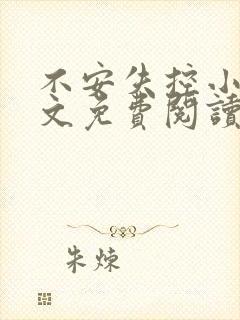 不安失控小
文免費閱讀
朱煉